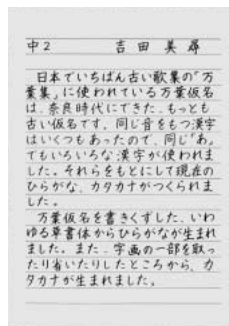 中2 吉田美尋
日本でいちばん古い歌集の“万
葉集」に使われている万葉仮名
は、奈良時代にできた、もっとも
古い仮名です。同じ音をもつ漢字
はいくつもあったので、同じ“あ„
でもいろいろな漢字が使われま
した。それらをもとにして現在の
ひらがな、カタカナがつくられま
した。
万葉仮名を書きくずした、いわ
ゆる草書体からひらがなが生まれ
ました。また、字画の一部を取っ
たり省いたりしたところから、カ
タカナが生まれました。